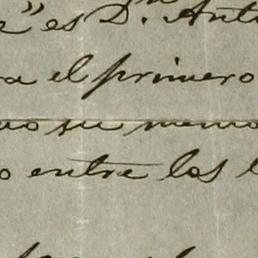 e" es Dn. Anto
ra el primero
no su memo
o entre los l